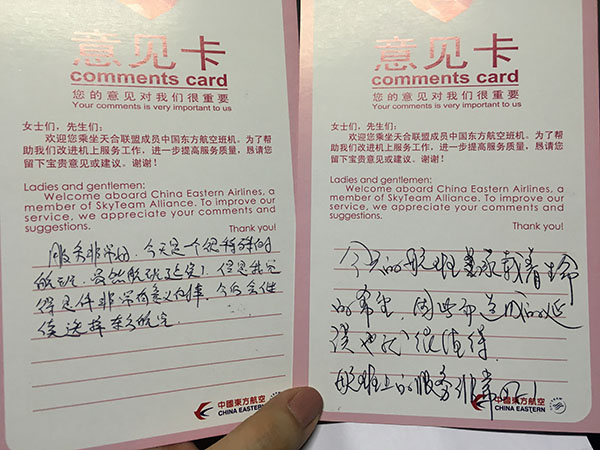 意见卡
comments card
您的意见对我们很重要
Your comments is very important to us
女士们，先生们：
欢迎您乘坐天合联盟成员中国东方航空班机。为了帮
助我们改进机上服务工作，进一步提高服务质量，恳请您
留下宝贵意见或建议。谢谢！
Ladies and gentlemen:
Welcome aboard China Eastern Airlines, a
member of SkyTeam Alliance. To improve our
service, we appreciate your comments and
suggestions.
Thank you!
服务非常好，今天是一个很特殊的
航班，虽然航班延误了，但是我觉
得是件非常有意义的事，今后会继
续选择东方航空
中國東方航空
CHINA EASTERN
意见卡
comments card
您的意见对我们很重要
Your comments is very important to us
女士们，先生们：
欢迎您乘坐天合联盟成员中国东方航空班机。为了帮
助我们改进机上服务工作，进一步提高服务质量，恳请您
留下宝贵意见或建议。谢谢！
Ladies and gentlemen:
Welcome aboard China Eastern Airlines, a
member of SkyTeam Alliance. To improve our
service, we appreciate your comments and
suggestions.
Thank you!
今天的航班承载着生命
的希望，因此而造成的延
误也很值得
航班上的服务非常好！
中國東方航空
CHINA EASTERN